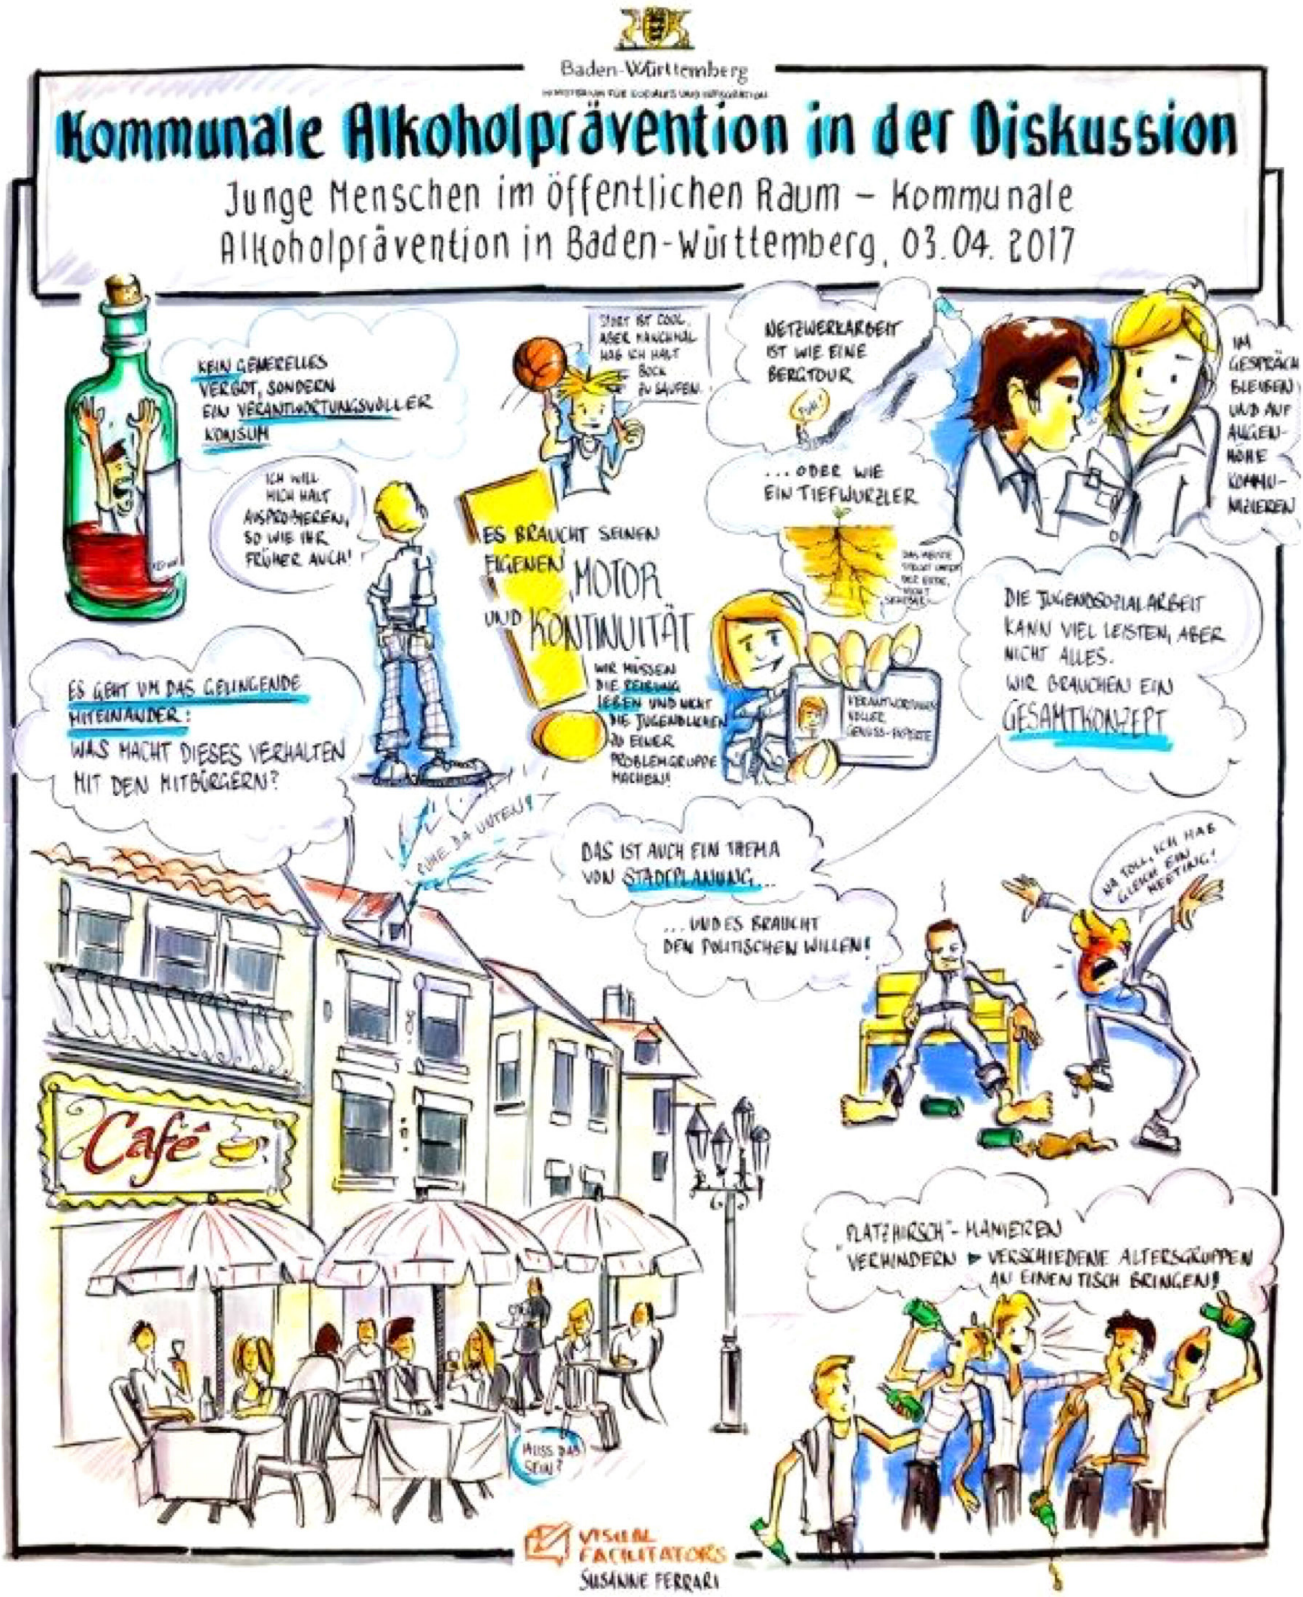 Baden-Württemberg
MINISTERIUM FÜR SOZIALES UND INTEGRATION
Kommunale Alkoholprävention in der Diskussion
Junge Menschen im öffentlichen Raum – Kommunale
Alkoholprävention in Baden-Württemberg, 03.04.2017
KEIN GENERELLES
VERBOT, SONDERN
EIN VERANTWORTUNGSVOLLER
KONSUM
SPORT IST COOL,
ABER MANCHMAL
HAB ICH HALT
BOCK
ZU SAUFEN.
NETZWERKARBEIT
IST WIE EINE
BERGTOUR
PUH!
...ODER WIE
EIN TIEFWURZLER
DAS MEISTE
UNTER
DER ERDE,
NICHT
IM
GESPRÄCH
BLEIBEN
UND AUF
AUGEN-
HÖHE
KOMMU-
NIZIEREN
ICH WILL
MICH HALT
AUSPROBIEREN,
SO WIE IHR
FRÜHER AUCH!
ES BRAUCHT SEINEN
EIGENEN MOTOR
UND KONTINUITÄT
WIR MÜSSEN
DIE REIBUNG
LEBEN UND NICHT
DIE JUGENDLICHEN
ZU EINER
PROBLEMGRUPPE
MACHEN!
VERANTWORTUNGS-
VOLLER
GENUSS-EXPERTE
DIE JUGENDSOZIALARBEIT
KANN VIEL LEISTEN, ABER
NICHT ALLES.
WIR BRAUCHEN EIN
GESAMTKONZEPT
ES GEHT UM DAS GELINGENDE
MITEINANDER:
WAS MACHT DIESES VERHALTEN
MIT DEN MITBÜRGERN?
RUHE DA UNTEN!
DAS IST AUCH EIN THEMA
VON STADTPLANUNG...
...UND ES BRAUCHT
DEN POLITISCHEN WILLEN!
NA TOLL, ICH HAB
GLEICH EIN
MEETING!
Café
"PLATZHIRSCH"-MANIEREN
VERHINDERN ▶ VERSCHIEDENE ALTERSGRUPPEN
AN EINEN TISCH BRINGEN!
MUSS DAS
SEIN?
VISUAL
FACILITATORS
SUSANNE FERRARI